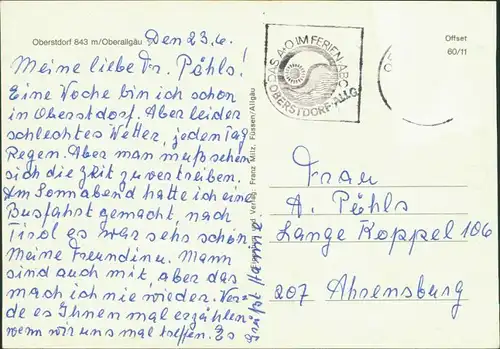 Oberstdorf 843 m/Oberallgäu
Den 23.6.
Meine liebe Fr. Pöhls!
Eine Woche bin ich schon
in Oberstdorf. Aber leider
schlechtes Wetter, jeden Tag
Regen. Aber man muß sehen
sich die Zeit zu vertreiben.
Am Sonnabend hatte ich eine
Busfahrt gemacht, nach
Tirol es war sehr schön.
Meine Freundin u. Mann
sind auch mit, aber das
mach ich nie wieder. Wer-
de es Ihnen mal erzählen
wenn wir uns mal treffen. Es
grüßt
Verlag: Franz Milz, Füssen/Allgäu
DAS A+O IM FERIEN-ABC
OBERSTDORF·ALLG.
Offset
60/11
Frau
A. Pöhls
Lange Koppel 106
207 Ahrensburg